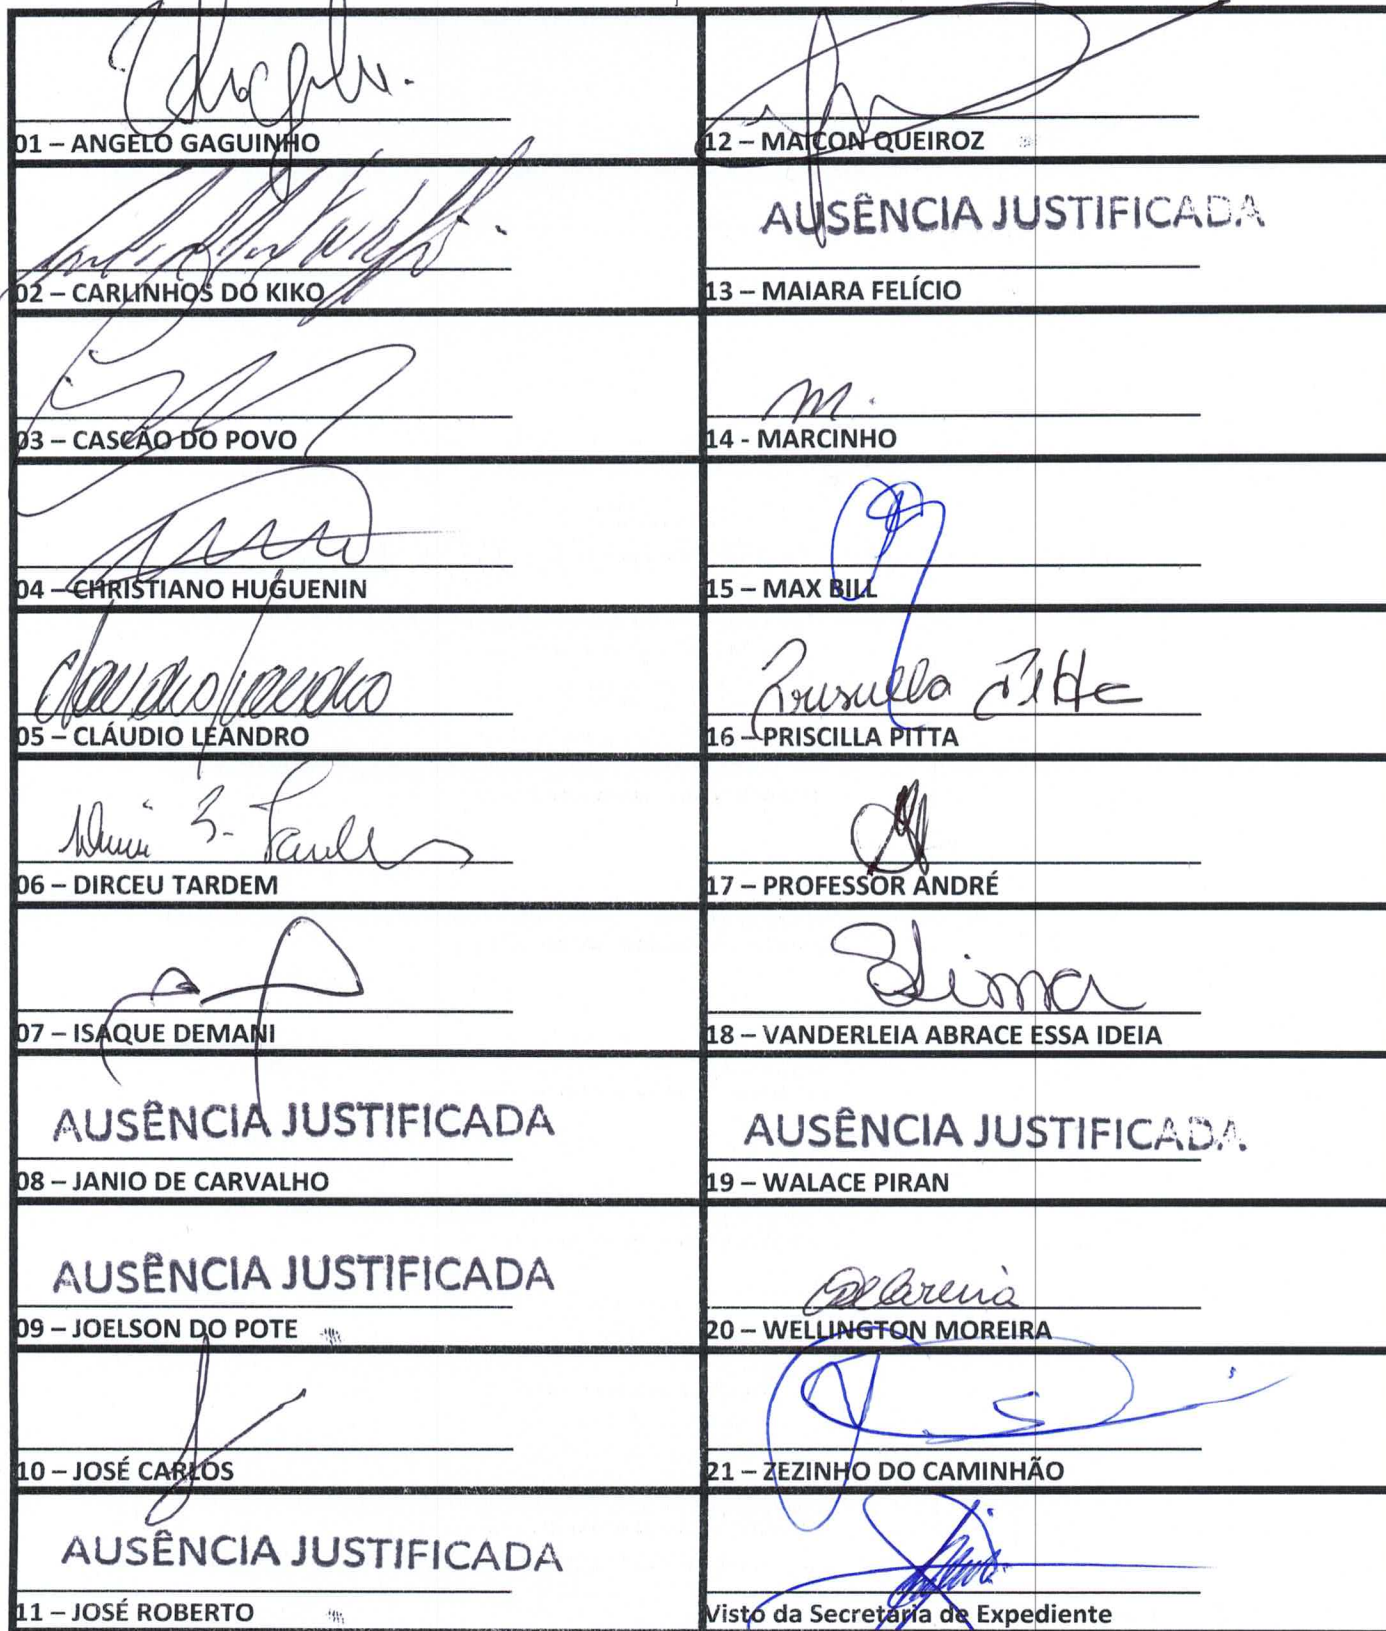 01 – ANGELO GAGUINHO
02 – CARLINHOS DO KIKO
03 – CASCÃO DO POVO
04 – CHRISTIANO HUGUENIN
05 – CLÁUDIO LEANDRO
06 – DIRCEU TARDEM
07 – ISAQUE DEMANI
AUSÊNCIA JUSTIFICADA
08 – JANIO DE CARVALHO
AUSÊNCIA JUSTIFICADA
09 – JOELSON DO POTE
10 – JOSÉ CARLOS
AUSÊNCIA JUSTIFICADA
11 – JOSÉ ROBERTO
12 – MAICON QUEIROZ
AUSÊNCIA JUSTIFICADA
13 – MAIARA FELÍCIO
14 - MARCINHO
15 – MAX BILL
Priscilla Pitta
16 – PRISCILLA PITTA
17 – PROFESSOR ANDRÉ
18 – VANDERLEIA ABRACE ESSA IDEIA
AUSÊNCIA JUSTIFICADA
19 – WALACE PIRAN
20 – WELLINGTON MOREIRA
21 – ZEZINHO DO CAMINHÃO
Visto da Secretaria de Expediente